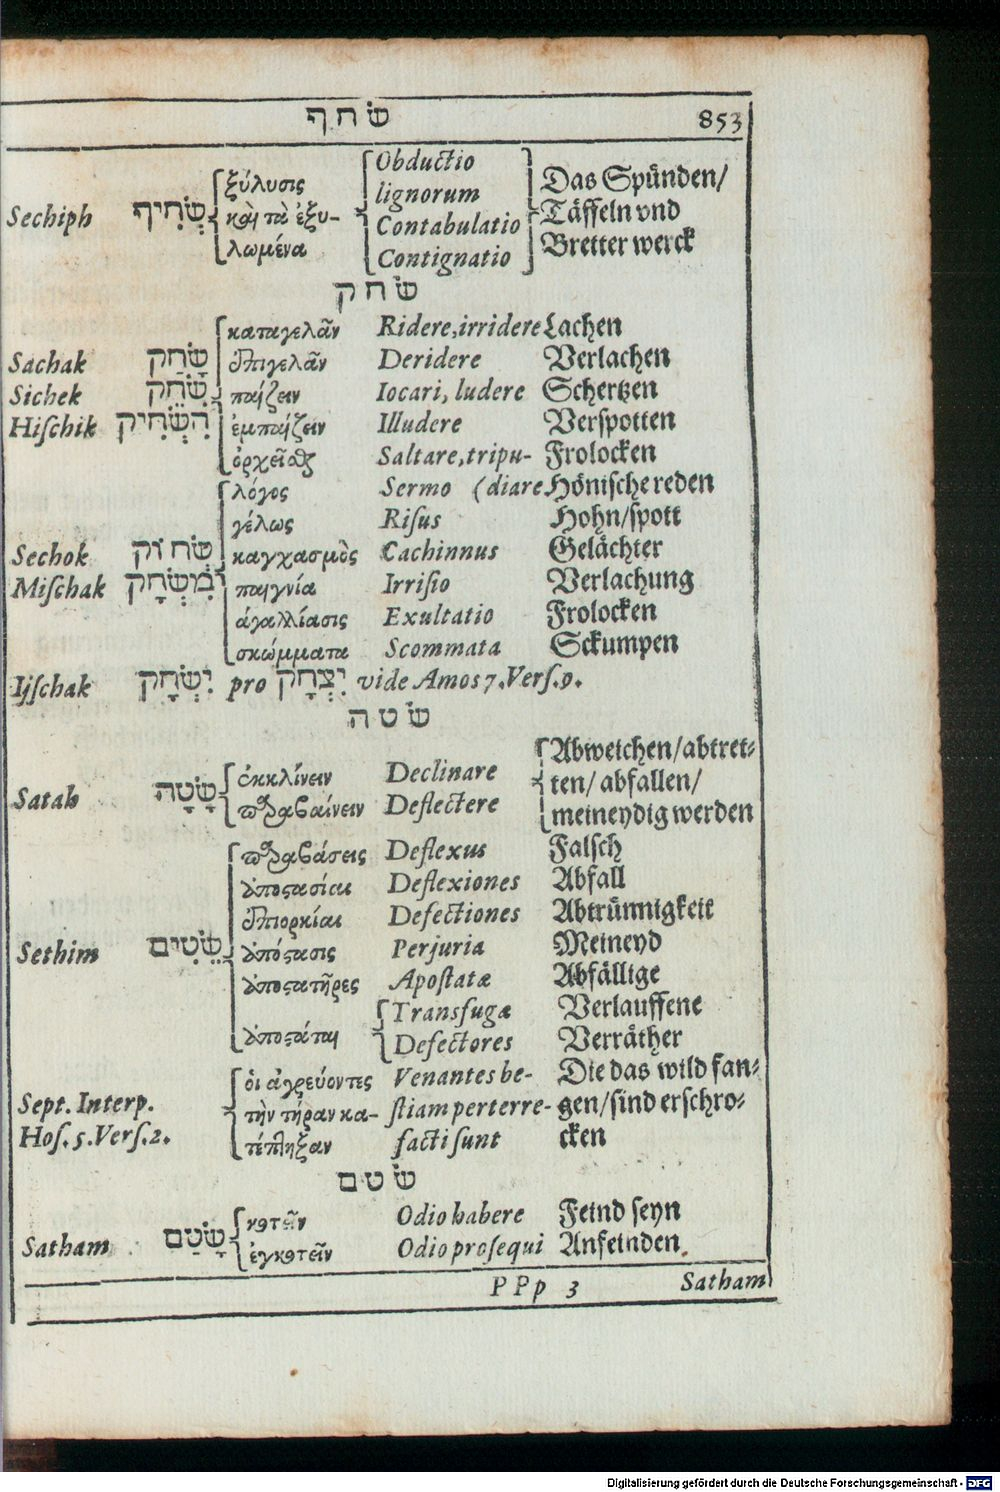 שׂ ח ף 853
ξύλυσις Obductio Das Spünden/
lignorum
Sechiph שְׂחִיף καὶ τὰ ἐξυ- Contabulatio Täffeln vnd
λωμένα Contignatio Bretter werck
שׂ ח ק
καταγελᾶν Ridere, irridere Lachen
Sachak שָׂחַק ἐπιγελᾶν Deridere Verlachen
Sichek שִׂחֵק παίζειν Iocari, ludere Schertzen
Hiſchik הִשְׂחִיק ἐμπαίζειν Illudere Verſpotten
ὀρχεῖσθ Saltare, tripu- Frolocken
λόγος Sermo (diare Höniſche reden
γέλως Riſus Hohn/ſpott
Sechok שְׂחוֹק καγχασμὸς Cachinnus Gelächter
Miſchak מִשְׂחָק παιγνία Irriſio Verlachung
ἀγαλλίασις Exultatio Frolocken
σκώμματα Scommata Sckumpen
Ijſchak יִשְׂחָק pro יִצְחָק vide Amos 7. Verſ. 9.
שׂ ט ה
Abweichen/abtret-
Satah שָׂטָה ἐκκλίνειν Declinare ten/ abfallen/
παραβαίνειν Deflectere meineydig werden
παραβάσεις Deflexus Falſch
ἀποστασίαι Deflexiones Abfall
ἐπιορκίαι Defectiones Abtrünnigkeit
Sethim שֵׂטִים ἀπόστασις Perjuria Meineyd
ἀποστατῆρες Apoſtatæ Abfällige
Transfugæ Verlauffene
ἀποστάται Defectores Verräther
οἱ ἀγρεύοντες Venantes be- Die das wild fan-
Sept. Interp. τὴν τήραν κα- ſtiam perterre- gen/ſind erſchro-
Hoſ. 5. Verſ. 2. τέπληξαν facti ſunt cken
שׂ ט ם
κοτεῖν Odio habere Feind ſeyn
Satham שָׂטַם ἐγκοτεῖν Odio proſequi Anfeinden.
PPp 3 Satham
Digitalisierung gefördert durch die Deutsche Forschungsgemeinschaft - DFG